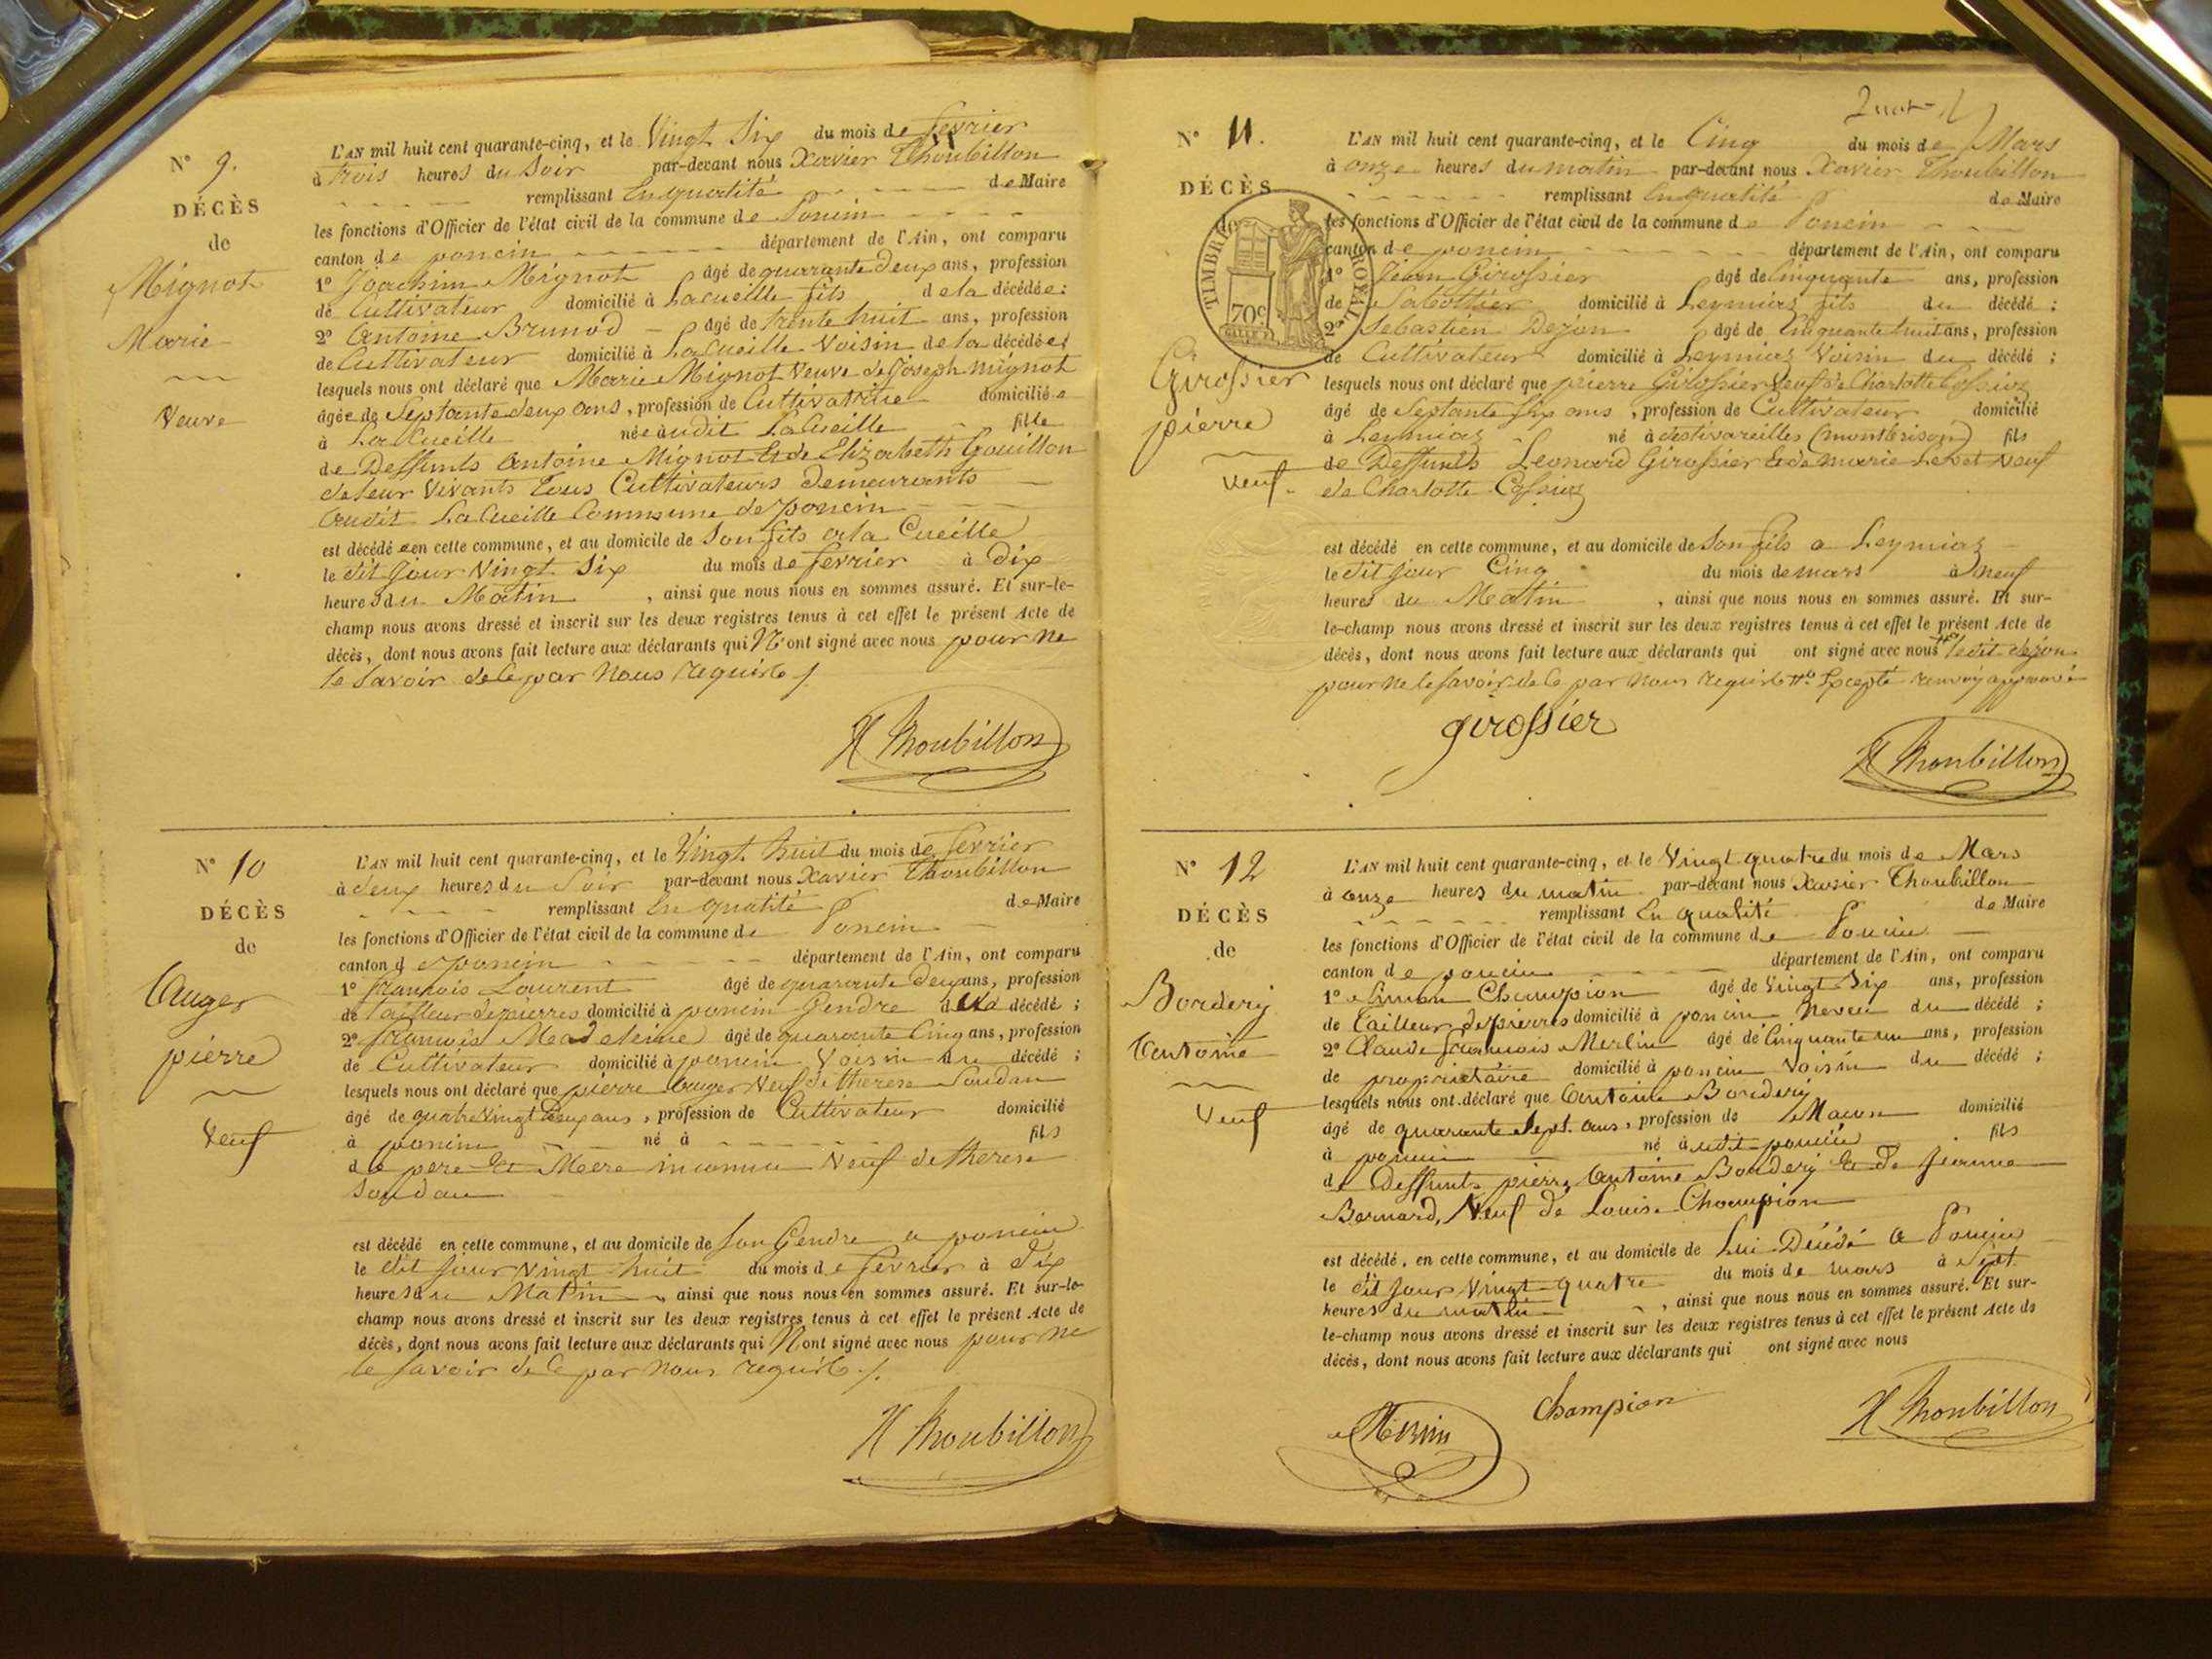 N° 9.
DÉCÈS
de
Mignot
Marie
Veuve
L'AN mil huit cent quarante-cinq, et le Vingt Six du mois de fevrier
à trois heures du Soir par-devant nous Xavier Thoubillon
remplissant En qualité de Maire
les fonctions d'Officier de l'état civil de la commune de Poncin
canton de poncin département de l'Ain, ont comparu
1° Joachim Mignot âgé de quarante deux ans, profession
de Cultivateur domicilié à La cueille fils de la décédée;
2° Antoine Brunod âgé de trente huit ans, profession
de Cultivateur domicilié à La Cueille Voisin de la décédée;
lesquels nous ont déclaré que Marie Mignot Veuve de Joseph Mignot
âgée de Septante deux ans, profession de Cultivatrice domiciliée
à La Cueille née audit La Cueille fille
de Deffunts Antoine Mignot Et de Elizabeth Gouillon
de leur Vivants tous Cultivateurs demeurants
audit La Cueille Commune de poncin
est décédée en cette commune, et au domicile de Son fils a la Cueille
le dit jour Vingt Six du mois de fevrier à Dix
heures du Matin, ainsi que nous nous en sommes assuré. Et sur-le-
champ nous avons dressé et inscrit sur les deux registres tenus à cet effet le présent Acte de
décès, dont nous avons fait lecture aux déclarants qui N'ont signé avec nous pour ne
le Savoir de ce par Nous requis /.
X Thoubillon
N° 10
DÉCÈS
de
Auger
pierre
Veuf
L'AN mil huit cent quarante-cinq, et le Vingt huit du mois de fevrier
à deux heures du Soir par-devant nous Xavier Thoubillon
remplissant En qualité de Maire
les fonctions d'Officier de l'état civil de la commune de Poncin
canton de poncin département de l'Ain, ont comparu
1° francois Laurent âgé de quarante deux ans, profession
de tailleur de pierres domicilié à poncin Gendre du décédé;
2° francois Madeleine âgé de quarante Cinq ans, profession
de Cultivateur domicilié à poncin Voisin du décédé;
lesquels nous ont déclaré que pierre auger Veuf de therese Soudan
âgé de quatre Vingt Deux ans, profession de Cultivateur domicilié
à poncin né à fils
de pere Et Mere inconnu Veuf de therese
Soudan
est décédé en cette commune, et au domicile de Son Gendre a poncin
le dit jour Vingt huit du mois de fevrier à Dix
heures du Matin, ainsi que nous nous en sommes assuré. Et sur-le-
champ nous avons dressé et inscrit sur les deux registres tenus à cet effet le présent Acte de
décès, dont nous avons fait lecture aux déclarants qui N'ont signé avec nous pour ne
le Savoir de ce par Nous requis /.
X Thoubillon
N° 11.
DÉCÈS
de
TIMBRE ROYAL
70c
Girossier
pierre
Veuf
L'AN mil huit cent quarante-cinq, et le Cinq du mois de Mars
à onze heures du matin par-devant nous Xavier Thoubillon
remplissant En qualité de Maire
les fonctions d'Officier de l'état civil de la commune de Poncin
canton de poncin département de l'Ain, ont comparu
1° Jean Girossier âgé de Cinquante ans, profession
de Sabottier domicilié à Leymiaz fils du décédé;
2° Sebastien Dejon âgé de Cinquante huit ans, profession
de Cultivateur domicilié à Leymiaz Voisin du décédé;
lesquels nous ont déclaré que pierre Girossier Veuf de Charlotte Cossiaz
âgé de Septante Six ans, profession de Cultivateur domicilié
à Leymiaz né à destivareilles (montbrison) fils
de Deffunts Leonard Girossier Et de Marie Veuf
de Charlotte Cossiaz
est décédé en cette commune, et au domicile de Son fils a Leymiaz
le dit jour Cinq du mois de mars à neuf
heures du Matin, ainsi que nous nous en sommes assuré. Et sur-
le-champ nous avons dressé et inscrit sur les deux registres tenus à cet effet le présent Acte de
décès, dont nous avons fait lecture aux déclarants qui ont signé avec nous ledit dejon
pour ne le Savoir de ce par Nous requis Excepté renvoy approuvé
girossier
X Thoubillon
N° 12
DÉCÈS
de
Borderiy
Antoine
Veuf
L'AN mil huit cent quarante-cinq, et le Vingt quatre du mois de Mars
à onze heures du matin par-devant nous Xavier Thoubillon
remplissant En qualité de Maire
les fonctions d'Officier de l'état civil de la commune de Poncin
canton de poncin département de l'Ain, ont comparu
1° Simon Champion âgé de Vingt Six ans, profession
de Tailleur de pierres domicilié à poncin Neveu du décédé;
2° Claude francois Merlin âgé de Cinquante un ans, profession
de proprietaire domicilié à poncin Voisin du décédé;
lesquels nous ont déclaré que Antoine Borderiy
âgé de quarante Sept ans, profession de Macon domicilié
à poncin né à udit poncin fils
de Deffunts pierre Antoine Borderiy Et de Jeanne
Bernard, Veuf de Louise Champion
est décédé, en cette commune, et au domicile de Lui Décédé a Poncin
le dit jour Vingt quatre du mois de mars à Sept
heures du matin, ainsi que nous nous en sommes assuré. Et sur-
le-champ nous avons dressé et inscrit sur les deux registres tenus à cet effet le présent Acte de
décès, dont nous avons fait lecture aux déclarants qui ont signé avec nous
Merlin
Champion
X Thoubillon